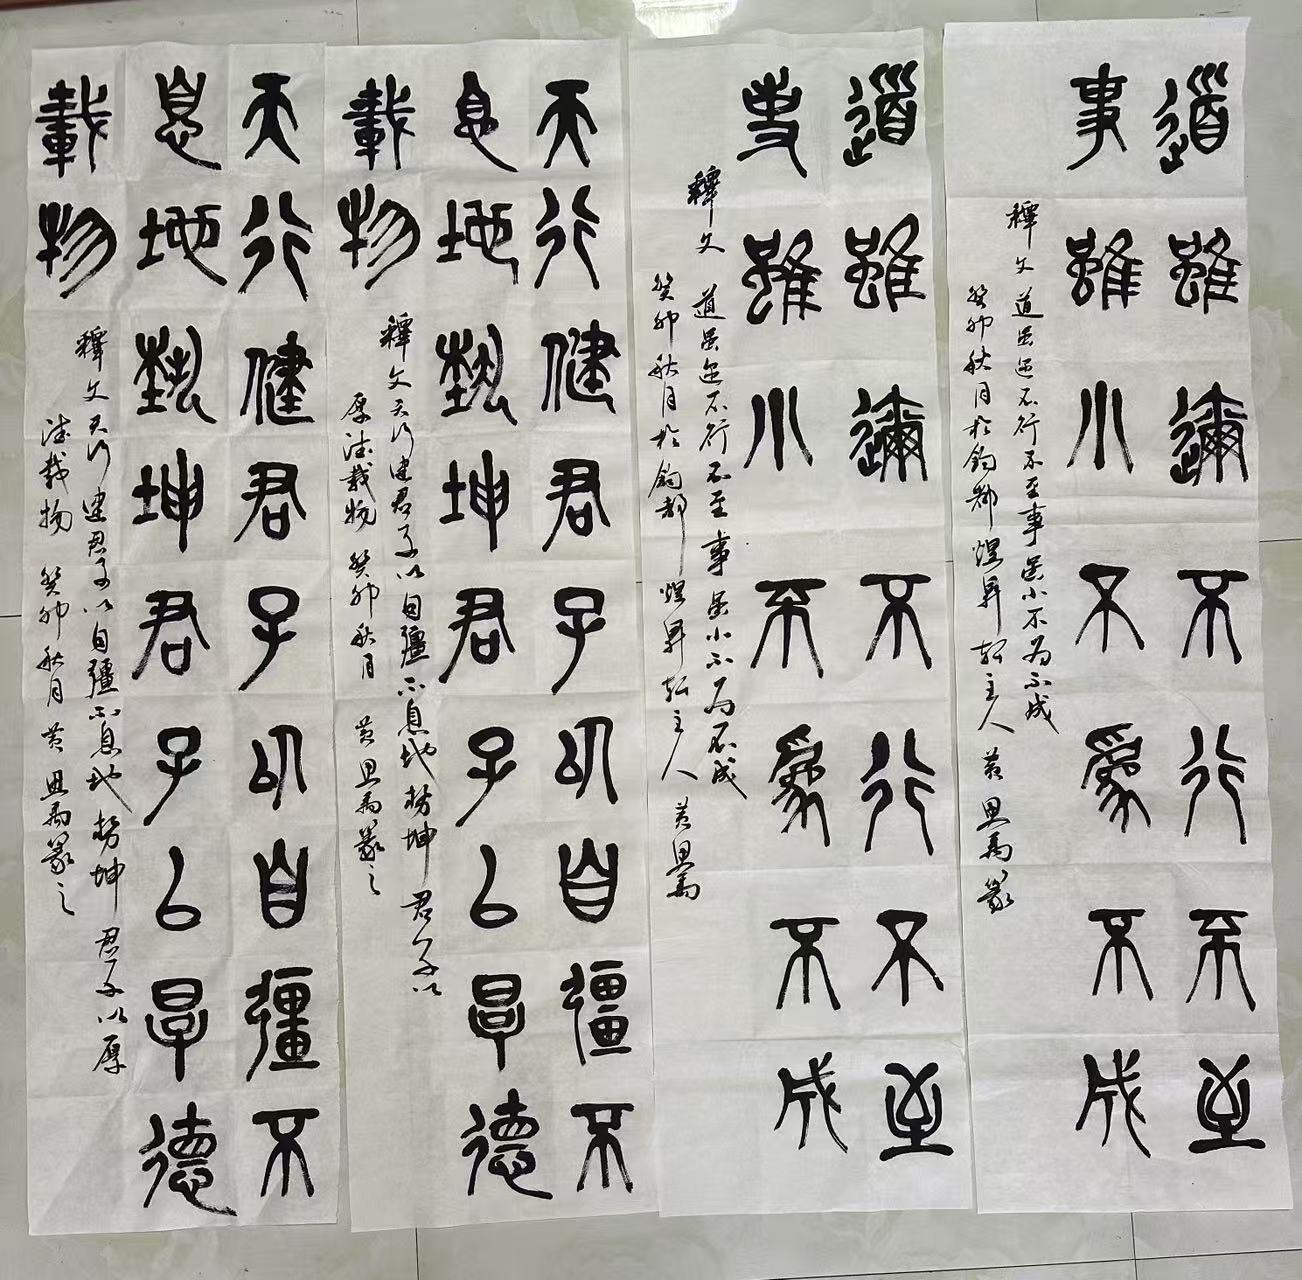 道雖邇不行不至
事雖小不為不成
釋文 道虽迩不行不至事虽小不为不成
癸卯秋月於钧都煜昇轩主人 黄思篆
道雖邇不行不至
事雖小不為不成
釋文 道虽迩不行不至事虽小不为不成
癸卯秋月於钧都煜昇轩主人 黄思
天行健君子以自彊不
息地埶坤君子以厚德
載物
釋文天行建君子以自疆不息地势坤君子以
厚德载物 癸卯秋月 黄思篆之
天行健君子以自彊不
息地埶坤君子以厚德
載物
釋文天行建君子以自疆不息地势坤君子以厚
德载物 癸卯秋月 黄思篆之